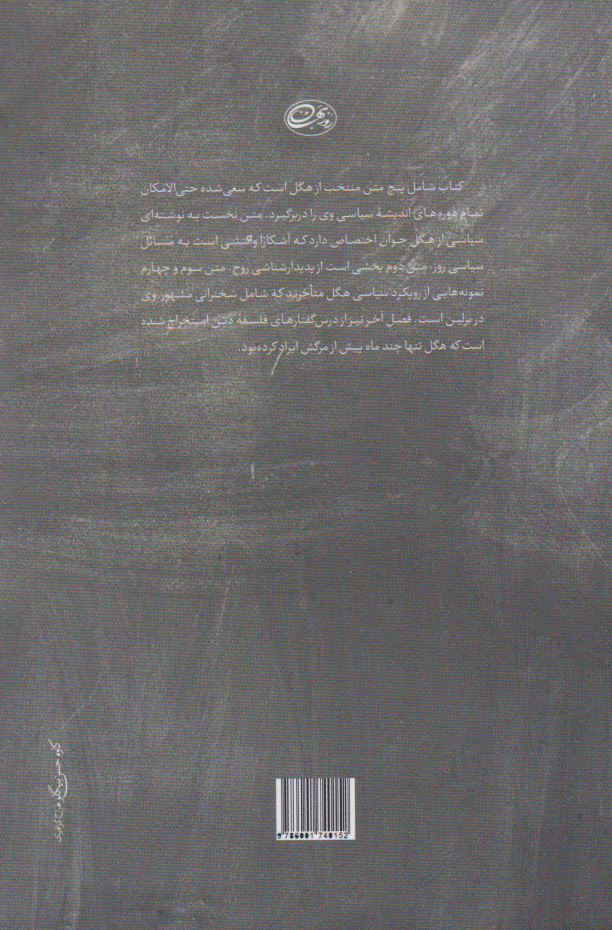 روزبهان
کتاب شامل پنج متن منتخب از هگل است که سعی‌شده حتی‌الامکان
تمام دوره‌های اندیشهٔ سیاسی وی را دربرگیرد. متن نخست به نوشته‌ای
سیاسی از هگل جوان اختصاص دارد که آشکارا واکنشی است به مسائل
سیاسی روز. متن دوم بخشی است از پدیدارشناسی روح. متن سوم و چهارم
نمونه‌هایی از رویکرد سیاسی هگل متأخرند که شامل سخنرانی مشهور وی
در برلین است. فصل آخر نیز از درس‌گفتارهای فلسفهٔ دین استخراج شده
است که هگل تنها چند ماه پیش از مرگش ایراد کرده‌بود.
کاوه حسن‌بیگلو طراح گرافیک
9 786001 740152